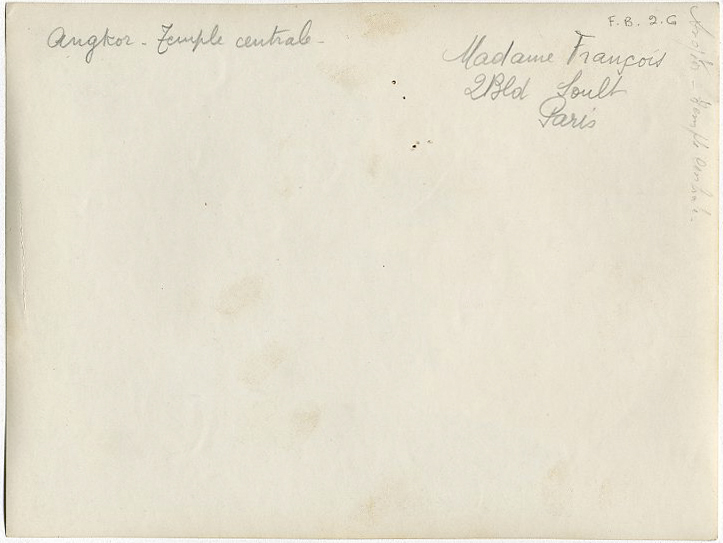 F. B. 2. G
Angkor - Temple centrale -
Madame François
2 Bld Soult
Paris
Angkor - Temple centrale -